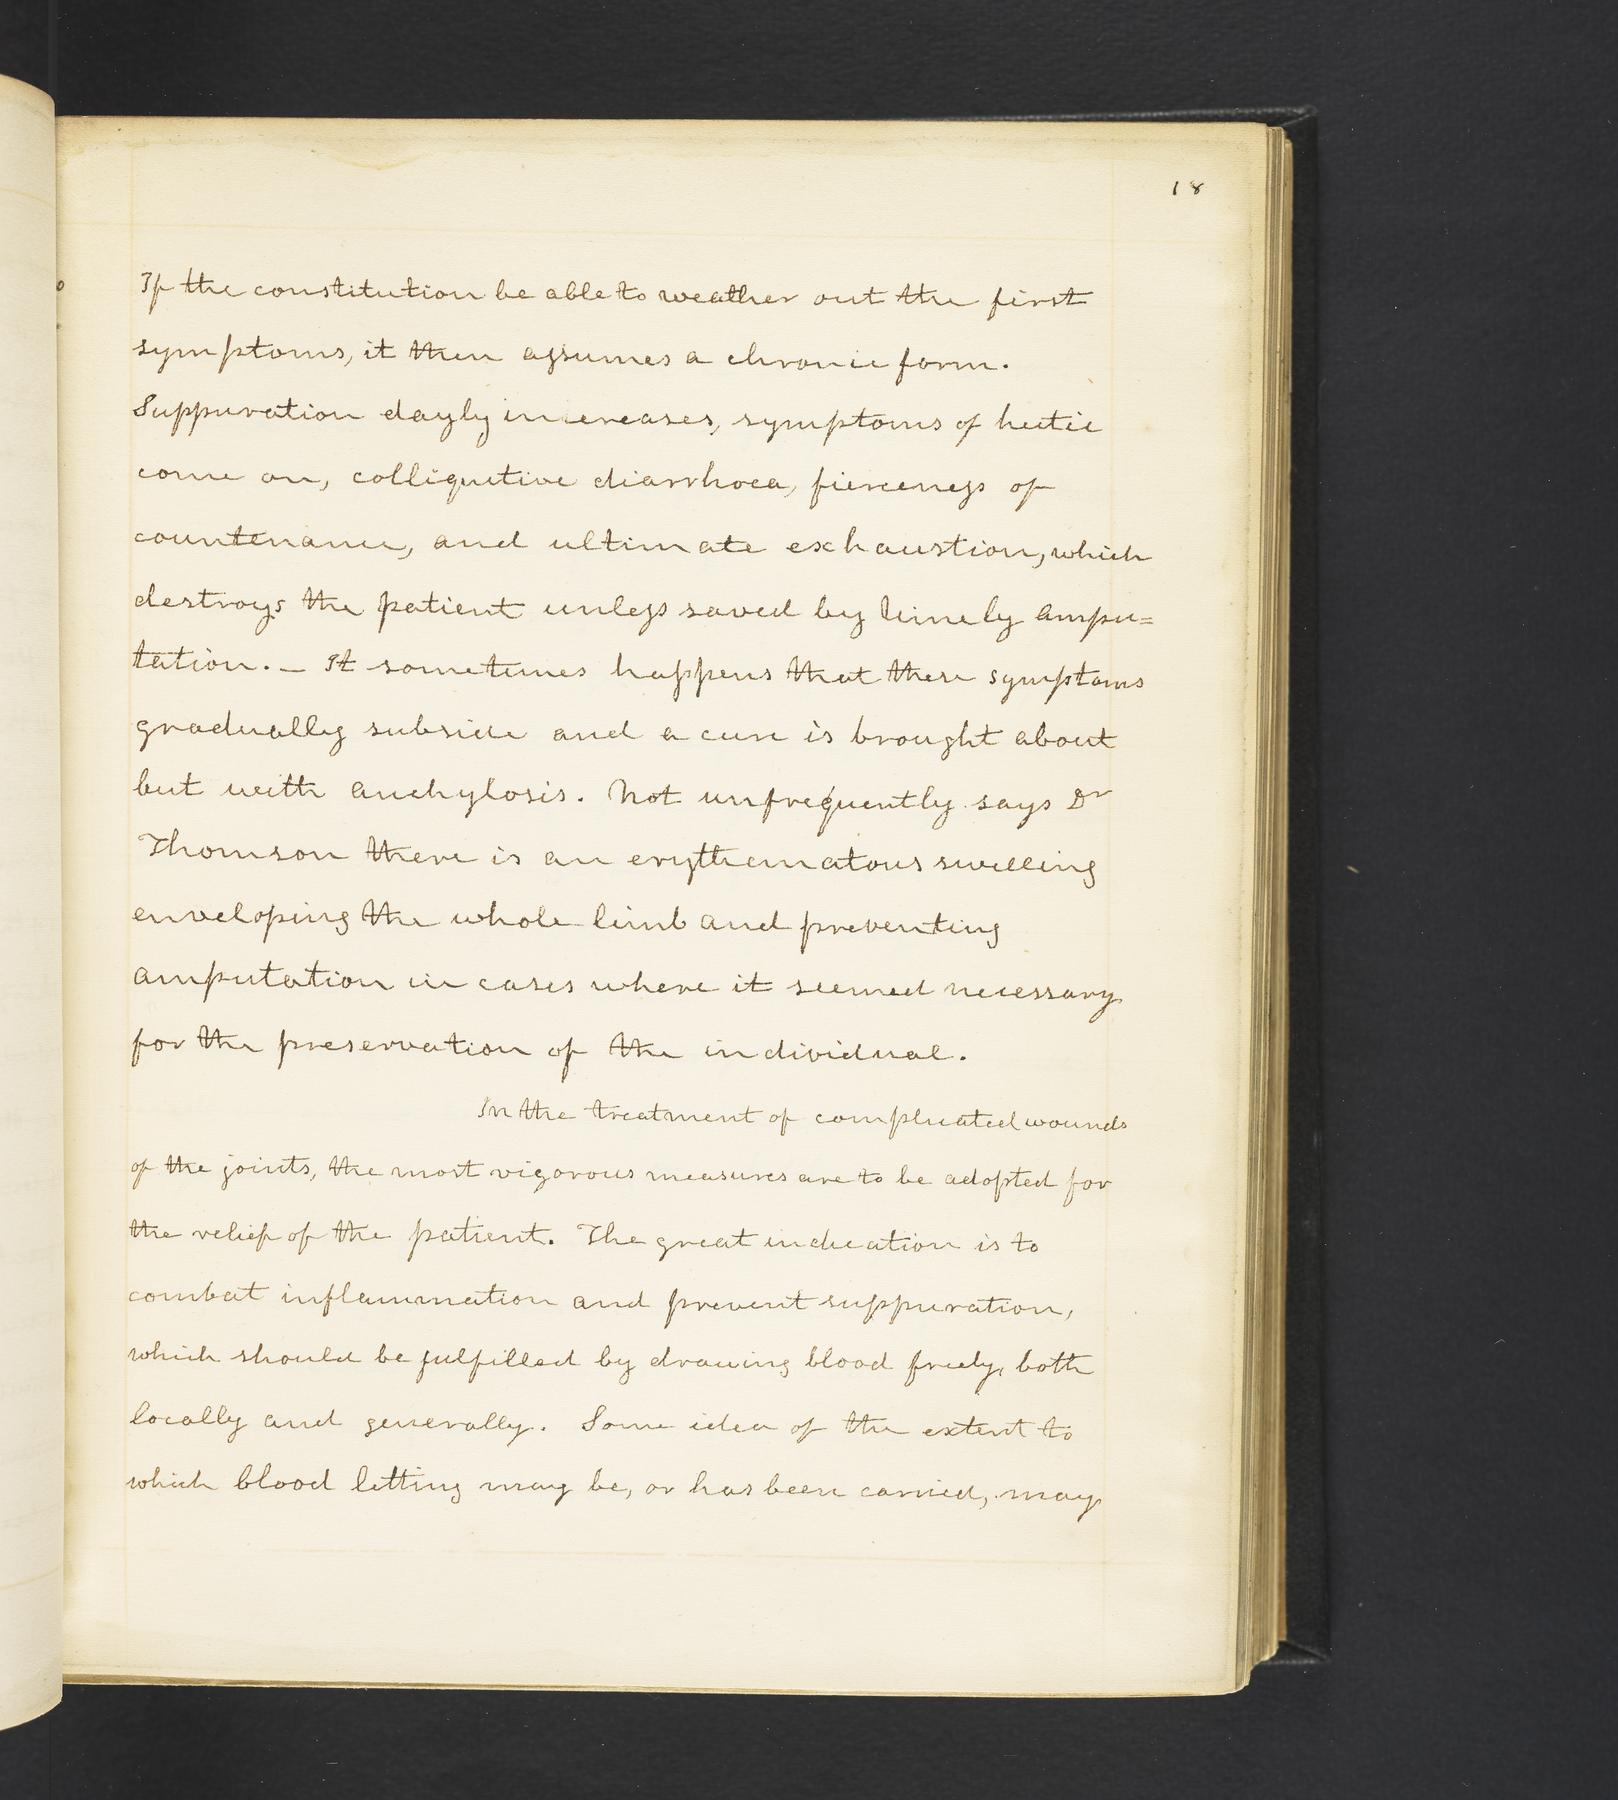 18
If the constitution be able to weather out the first
symptoms, it then assumes a chronic form.
Suppuration dayly increases, symptoms of hectic
come on, colliquitive diarrhoea, fierceness of
countenance, and ultimate exhaustion, which
destroys the patient unless saved by timely ampu=
tation. _ It sometimes happens that these symptoms
gradually subside and a cure is brought about
but with anchylosis. Not unfrequently says Dr
Thomson there is an erythematous swelling
enveloping the whole limb and preventing
amputation in cases where it seemed necessary
for the preservation of the individual.
In the treatment of complicated wounds
of the joints, the most vigorous measures are to be adopted for
the relief of the patient. The great indication is to
combat inflammation and prevent suppuration,
which should be fulfilled by drawing blood freely, both
locally and generally. Some idea of the extent to
which blood letting may be, or has been carried, may